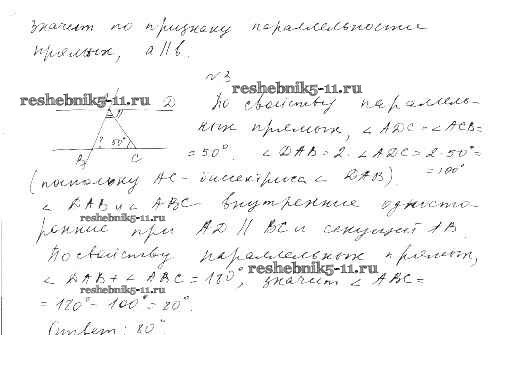 значит по признаку параллельности
прямых, a || b.
№3
reshebnik5-11.ru
reshebnik5-11.ru D По свойству параллель-
ных прямых, ∠ADC = ∠ACB =
? 50° = 50°. ∠DAB = 2·∠ADC = 2·50° =
B C = 100°
(поскольку AC - биссектриса ∠DAB).
∠DAB и ∠ABC - внутренние односто-
reshebnik5-11.ru
ронние при AD || BC и секущей AB.
По свойству параллельных прямых,
reshebnik5-11.ru
∠DAB + ∠ABC = 180°, значит ∠ABC =
reshebnik5-11.ru
= 180° - 100° = 80°.
Ответ: 80°.